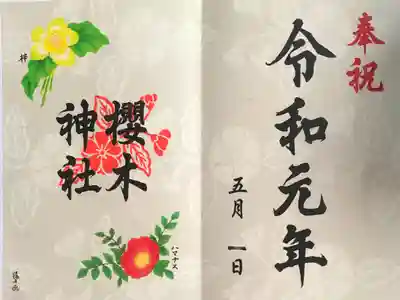 奉祝
令和元年
五月一日
櫻木
神社
ハマナス